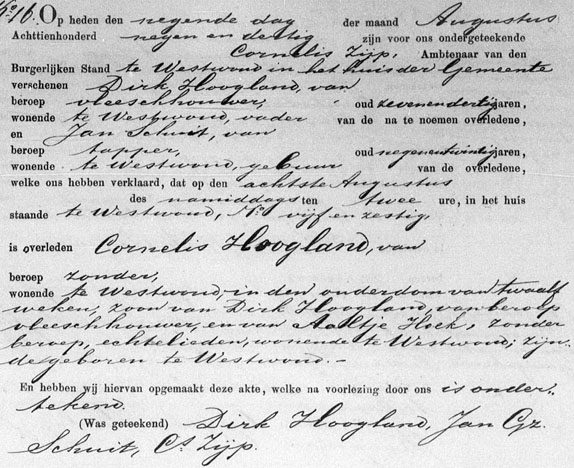 No 16. Op heden den negende dag der maand Augustus
Achttienhonderd negen en dertig zijn voor ons ondergeteekende
Cornelis Zijp, Ambtenaar van den
Burgerlijken Stand te Westwoud in het huis der Gemeente
verschenen Dirk Hoogland, van
beroep vleeschhouwer, oud zevenendertig jaren,
wonende te Westwoud, vader van de na te noemen overledene,
en Jan Schuit, van
beroep tapper, oud negenentwintig jaren,
wonende te Westwoud, gebuur van de overledene,
welke ons hebben verklaard, dat op den achtste Augustus
des namiddags ten twee ure, in het huis
staande te Westwoud, No. vijf en zestig,
is overleden Cornelis Hoogland, van
beroep zonder,
wonende te Westwoud, in den ouderdom van twaalf
weken, zoon van Dirk Hoogland, van beroep
vleeschhouwer, en van Aaltje Hoek, zonder
beroep, echtelieden, wonende te Westwoud; zijn-
de geboren te Westwoud. –
En hebben wij hiervan opgemaakt deze akte, welke na voorlezing door ons is onder-
tekend.
(Was geteekend) Dirk Hoogland, Jan Cz.
Schuit, Cs Zijp.